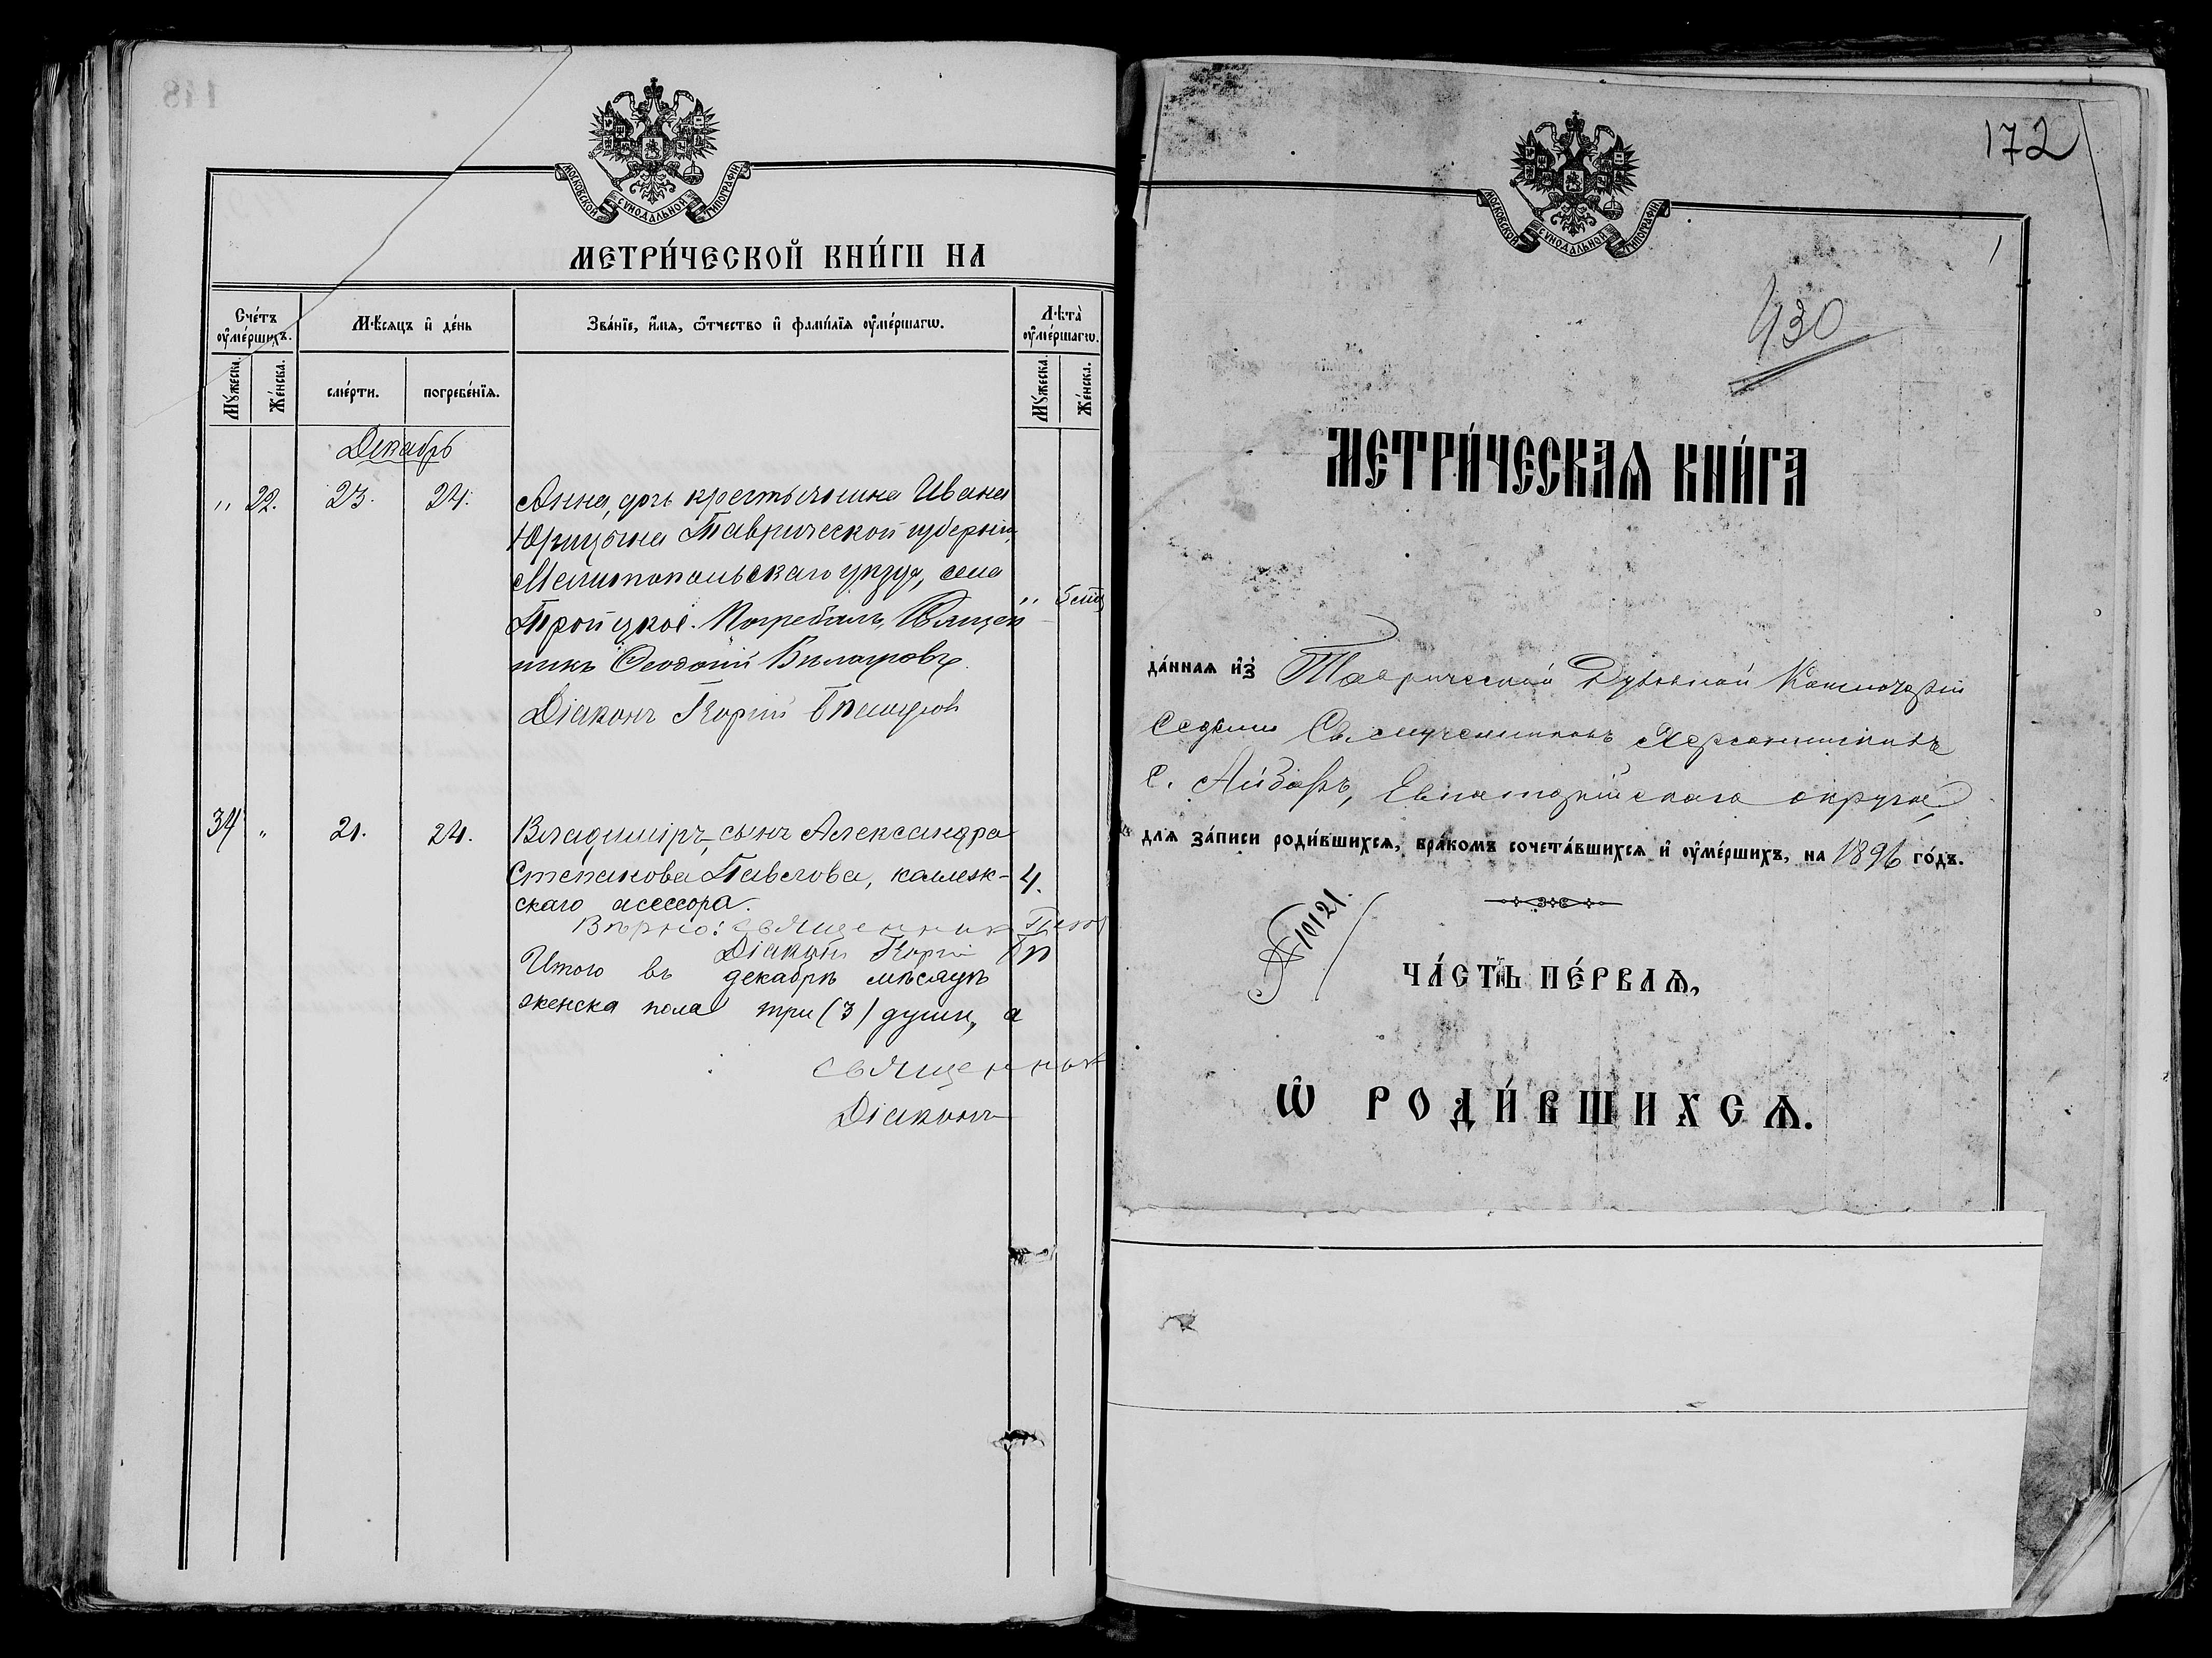 МОСКОВСКОЙ СѴНОДАЛЬНОЙ ТИПОГРАФІИ
МЕТРИ́ЧЕСКОЙ КНИ́ГИ НА
Сче́тъ ᲂу҆ме́ршихъ.
Мѣ́сяцъ и҆ де́нь
Зва́нїе, и҆́мя, ѻ҆́тчество и҆ фамѝлїя ᲂу҆ме́ршагѡ.
Лѣ́та ᲂу҆ме́ршагѡ.
Мꙋ́жеска.
Же́нска.
сме́рти.
погребе́нїя.
Мꙋ́жеска.
Же́нска.
Декабрь
" 22. 23. 24. Анна, дчь крестьянина Ивана
Таврической губерніи,
Мелитопольскаго уѣзда, села
Тройцкое. Погребалъ Священ
никъ Ѳеодосій
Діаконъ
" 5
34 " 21. 24. Владиміръ, сынъ Александра
Степанова Павлова, коллеж-
скаго асессора.
4.
Вѣрно: священник
Діаконъ
Итого въ декабрѣ мѣсяцѣ
женска пола три (3) души, а
священник
Діаконъ
172
МОСКОВСКОЙ СѴНОДАЛЬНОЙ ТИПОГРАФІИ
1
430
МЕТРИ́ЧЕСКАѦ КНИ́ГА
да́нная и҆з̾ Таврической Духовной Консисторіи
Седьми Св. мучениковъ Херсонискихъ
с. Айбаръ, Евпаторійскаго округа,
для за́писи роди́вшихся, бра́комъ сочета́вшихся и҆ ᲂу҆ме́ршихъ, на 1896 го́дъ.
№ 10121.
ЧА́СТЬ ПЕ́РВАѦ,
Ѡ҆ РОДИ́ВШИХСѦ.